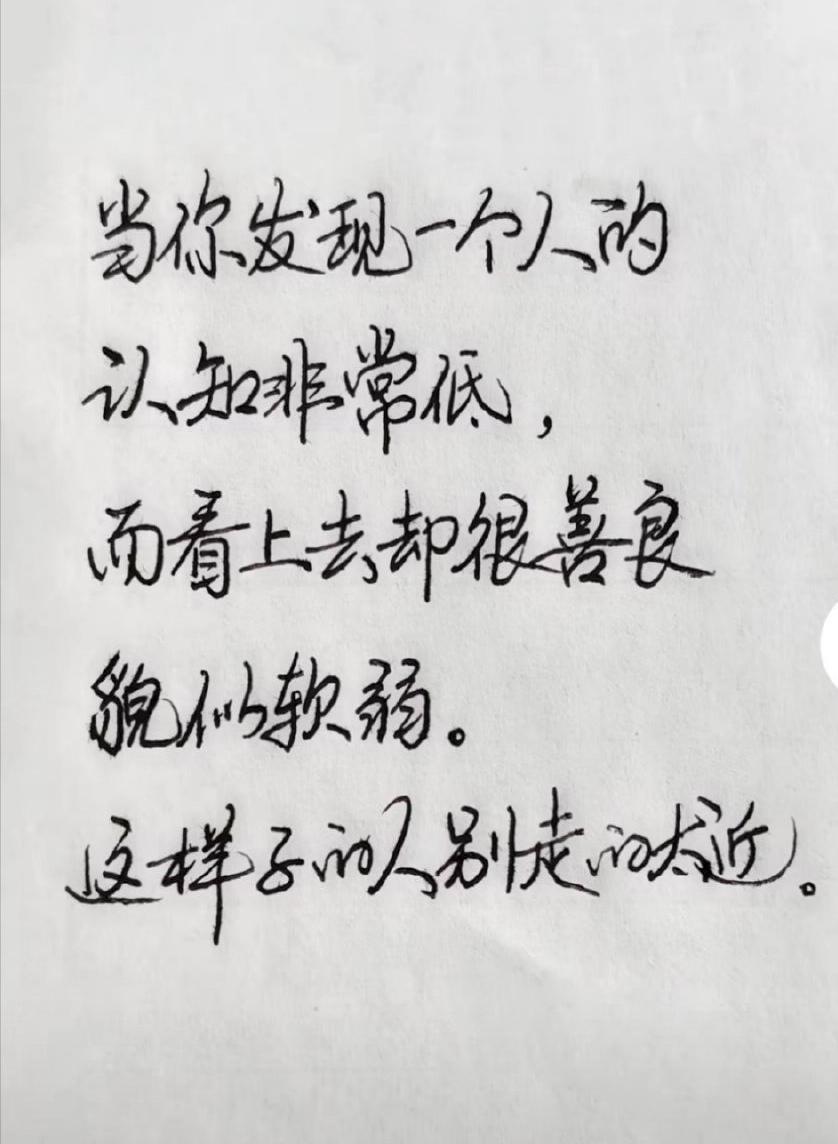 当你发现一个人的
认知非常低，
而看上去却很善良
貌似软弱。
这样子的人别走的太近。